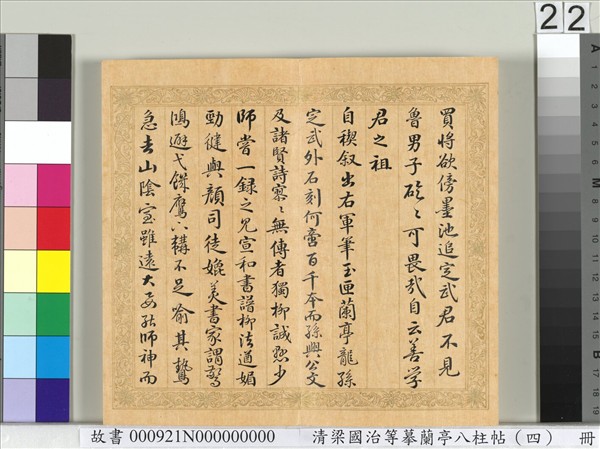 買將欲傍墨池追定武君不見
魯男子硜〻可畏哉自云善學
君之祖
自稧叙出右軍筆玉匣蘭亭龍孫
定武外石刻何啻百千本而孫興公文
及諸賢詩寥〻無傳者獨柳誠懸少
師嘗一録之見宣和書譜柳法遒媚
勁健與顔司徒媲美書家謂驚
鴻避弋飢鷹下韝不足喻其鷙
急去山陰室雖遠大要能師神而
22
故書 000921N000000000 清梁國治等摹蘭亭八柱帖（四） 冊